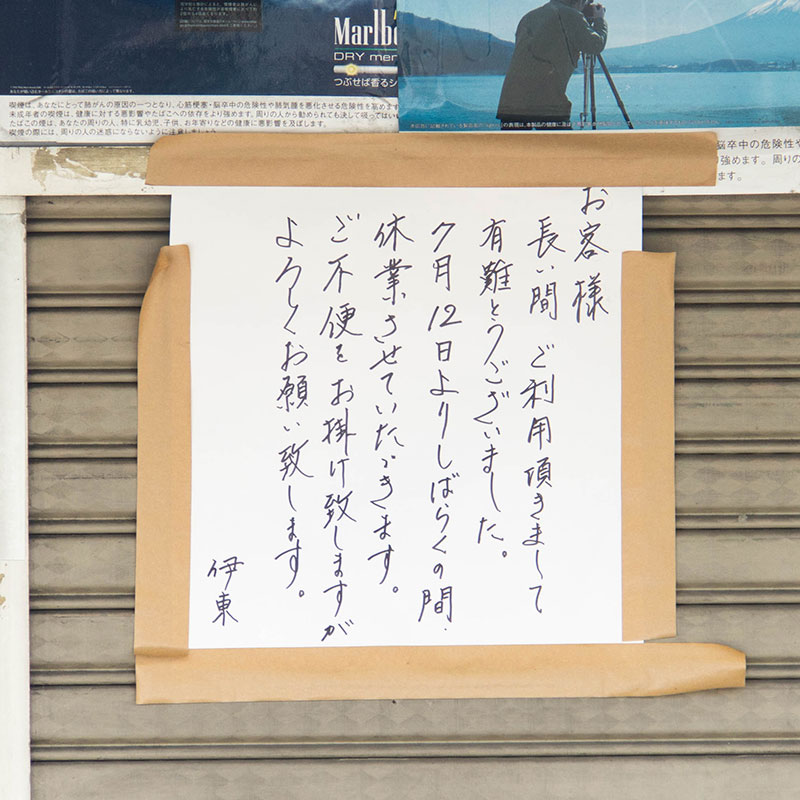 Marlb
DRY men
つぶせば香るシ
喫煙は、あなたにとって肺がんの原因の一つとなり、心筋梗塞・脳卒中の危険性や肺気腫を悪化させる危険性を高めます
未成年者の喫煙は、健康に対する悪影響やたばこへの依存をより強めます。周りの人から勧められても決して吸ってはいけ
たばこの煙は、あなたの周りの人、特に乳幼児、子供、お年寄りなどの健康に悪影響を及ぼします。
喫煙の際には、周りの人の迷惑にならないように注意しましょう
脳卒中の危険性や
強めます。周りの
ます。
お客様
長い間 ご利用頂きまして
有難とうございました。
7月12日よりしばらくの間
休業させていただきます。
ご不便をお掛け致しますが
よろしくお願い致します。
伊東